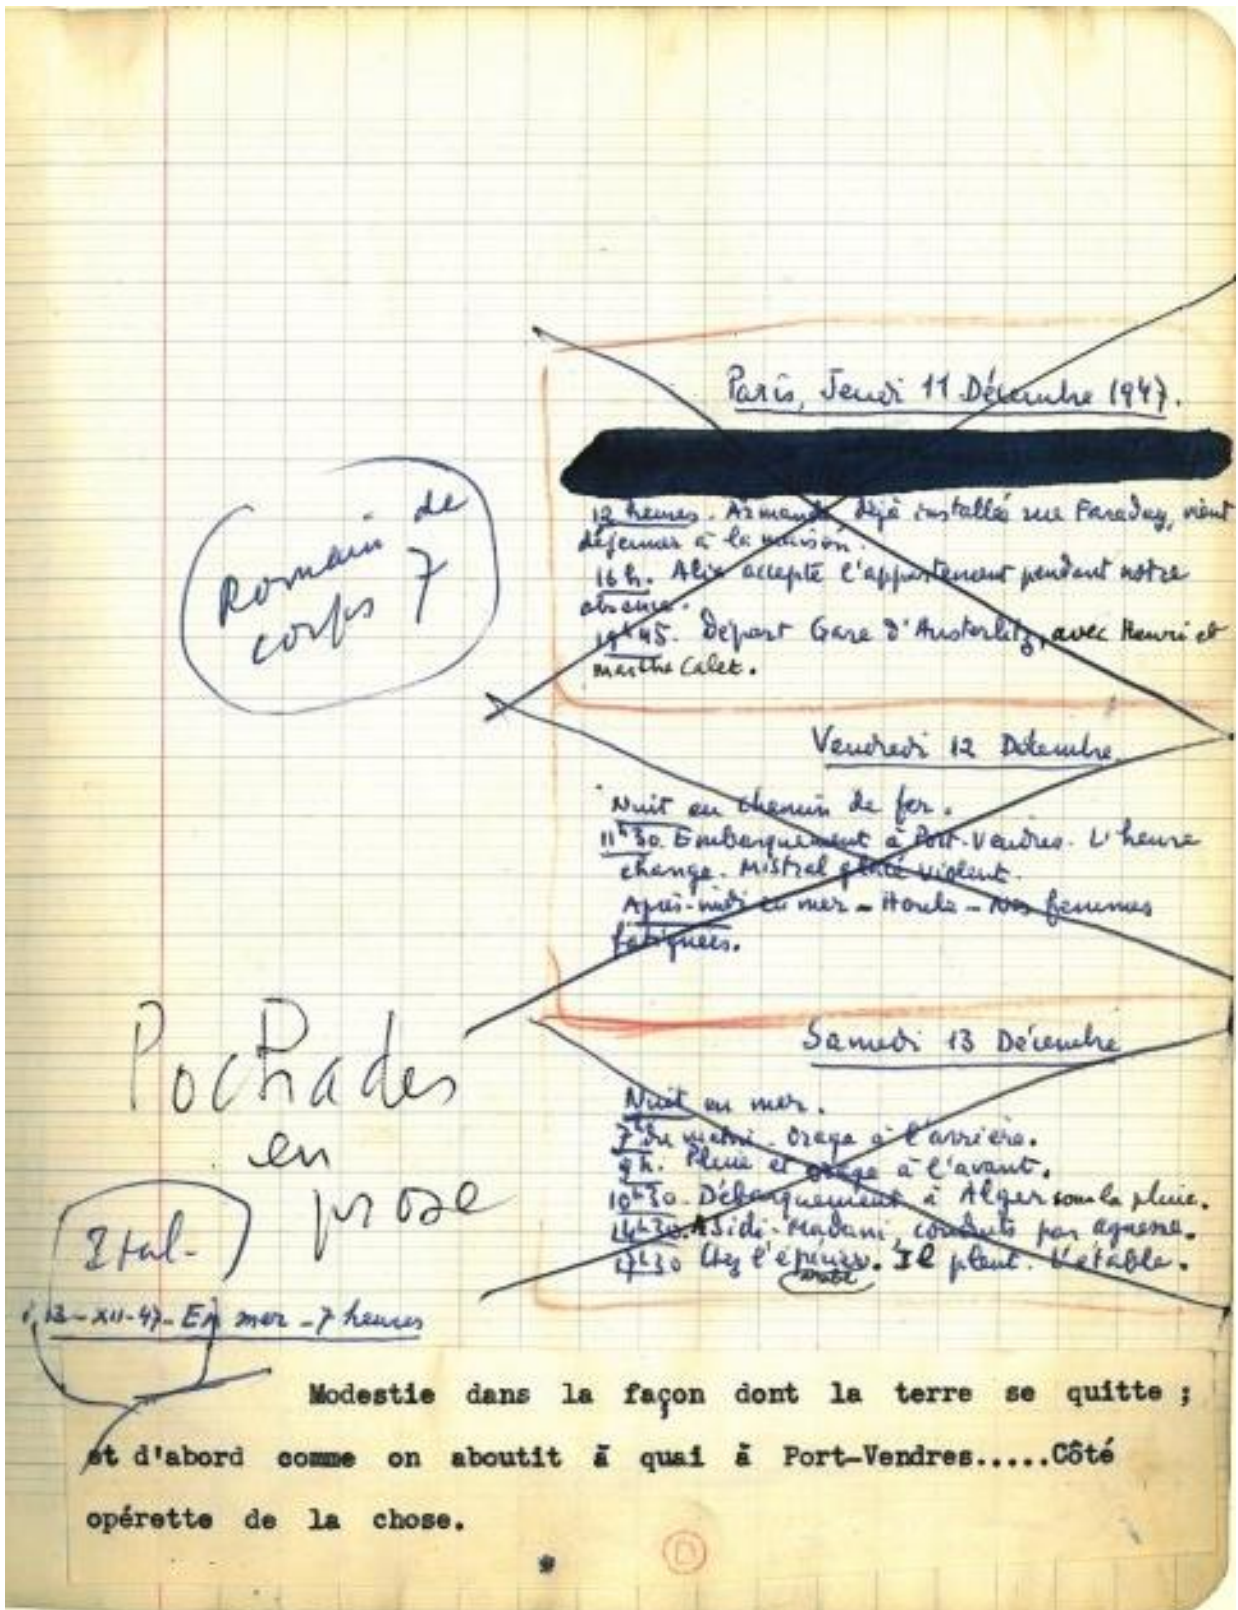 Paris, Jeudi 11 Décembre 1947.
12 heures. Armande déjà installée rue Faraday, vient
déjeuner à la maison.
16 h. Alix accepte l'appartement pendant notre
absence.
19h45. Départ Gare d'Austerlitz, avec Henri et
Marthe Calet.
Romain de
corps 7
Vendredi 12 Décembre
Nuit en chemin de fer.
11h30. Embarquement à Port-Vendres. L'heure
change. Mistral glacé violent.
Après-midi en mer - Houle - Nos femmes
fatiguées.
Samedi 13 Décembre
Nuit en mer.
7h du matin. Orage à l'arrière.
9h. Pluie et orage à l'avant.
10h30. Débarquement à Alger sous la pluie.
14h30. A Sidi-Madani, conduits par
17h30 Chez l'épicier. Il pleut. L'étable.
arabe
Pochades
en
prose
Ital-
13-XII-47- En mer - 7 heures
Modestie dans la façon dont la terre se quitte ;
et d'abord comme on aboutit à quai à Port-Vendres.....Côté
opérette de la chose.
D